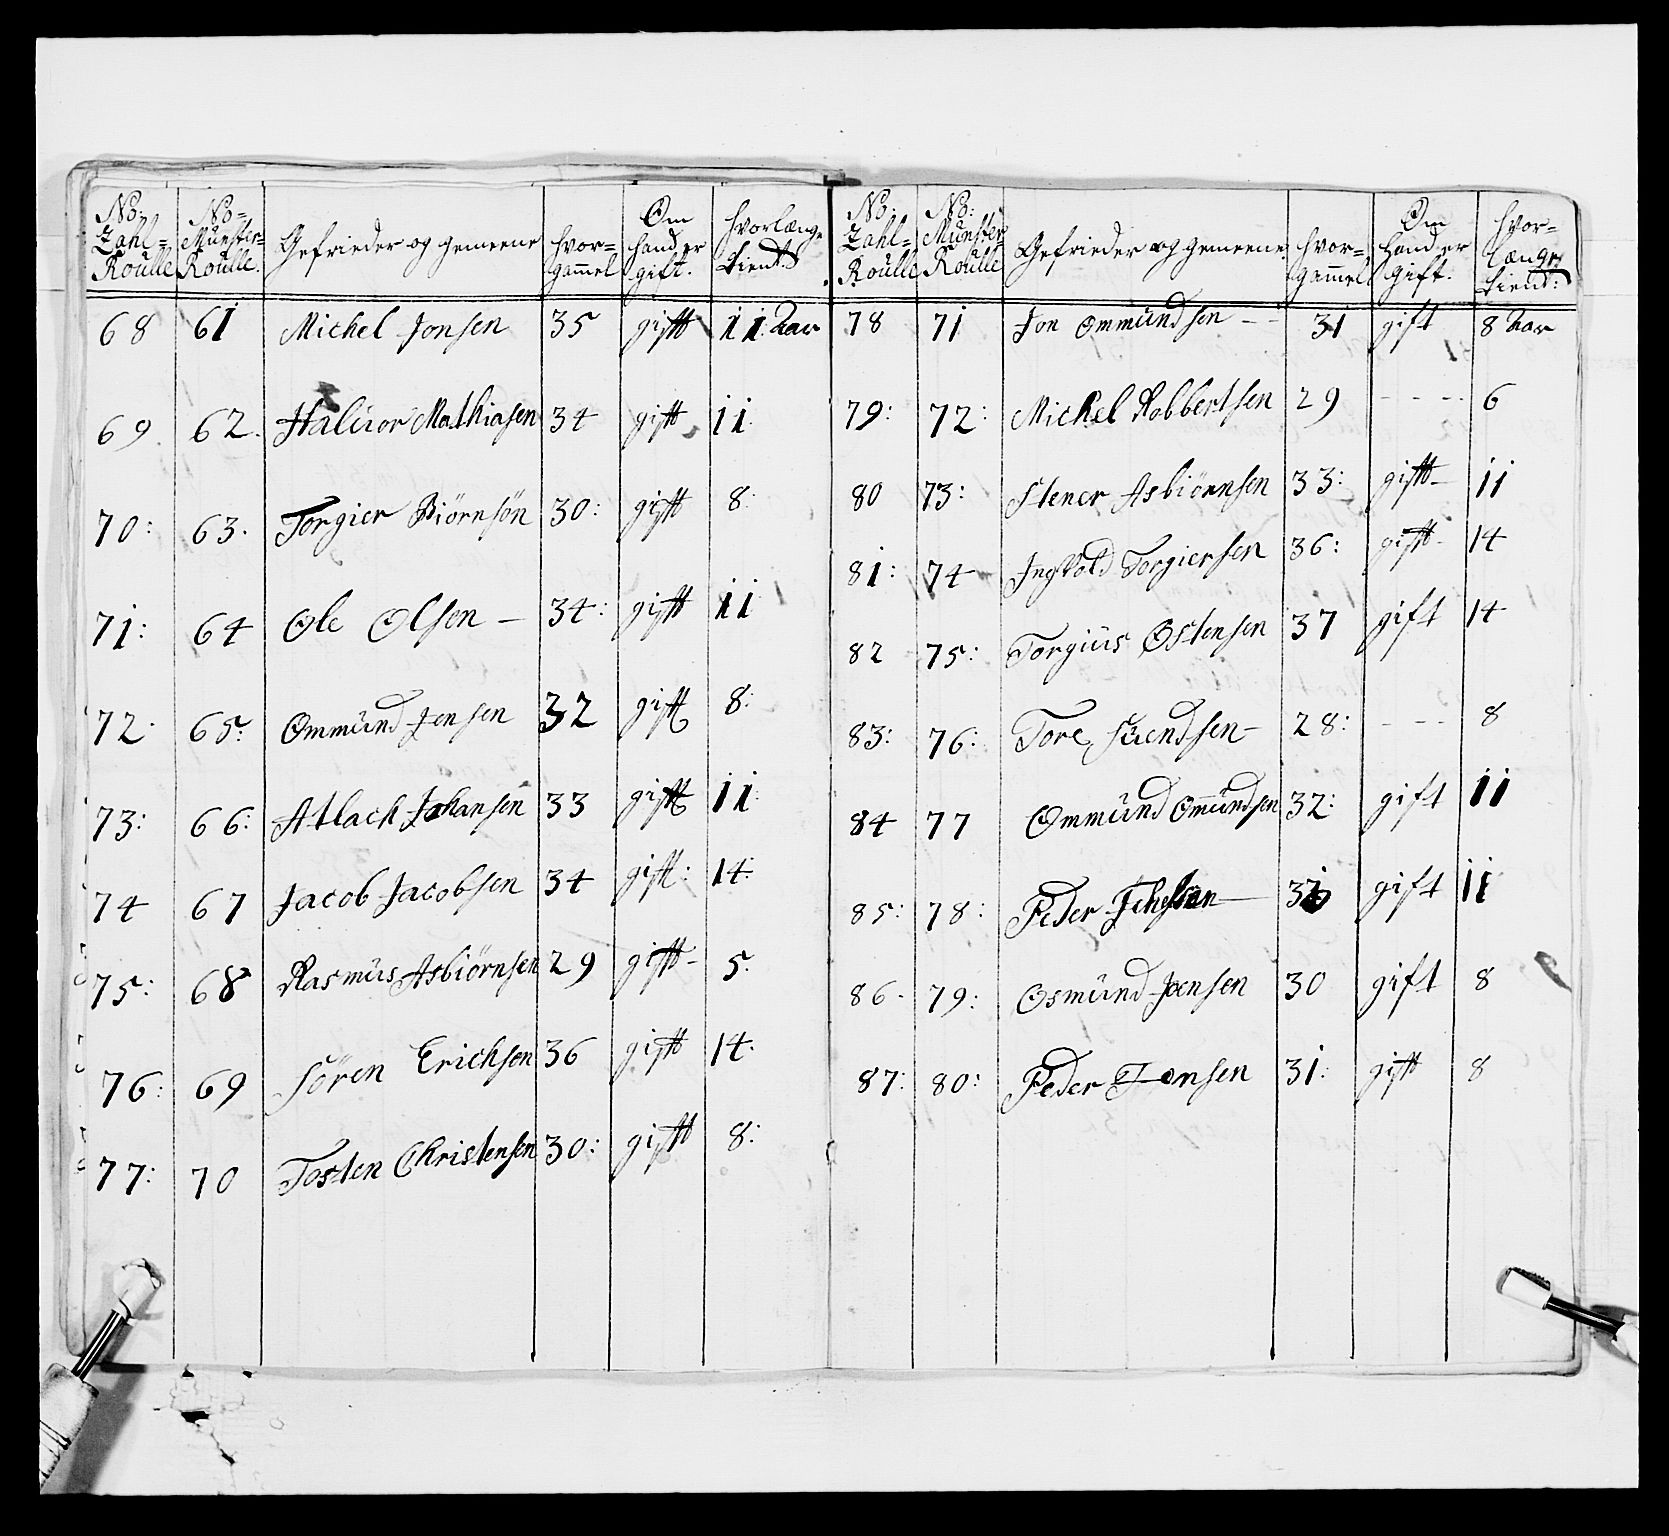 No: Zahl= Roulle | No= Münster= Roulle. | Gefrieder og gemeene | hvor= gammel | Om hand er gift. | hvorlænge tient
68 | 61 | Michel Jonsen | 35 | gift | 11. Aar
69. | 62. | Halvor Mathiasen | 34 | gift | 11.
70: | 63. | Torgier Biörnsön | 30: | gift | 8:
71: | 64 | Ole Olsen – | 34: | gift | 11
72: | 65: | Ommünd Jensen | 32 | gift | 8:
73: | 66: | Atlach Johansen | 33 | gift | 11:
74 | 67 | Jacob Jacobsen | 34 | gift: | 14:
75: | 68 | Rasmüs Asbiörnsen | 29 | gift– | 5.
76: | 69 | Sören Erichsen | 36 | gift | 14:
77: | 70 | Tosten Christensen | 30: | gift | 8:
No: Zahl= Roulle | No: Münster Roülle | Gefrieder og gemeene | hvor= gammel | Om hand er gift. | hvor= længe tient:
78 | 71 | Jon Ommündsen – – | 31 | gift | 8 Aar
79: | 72: | Michel Robbertsen | 29 | - - - - | 6
80 | 73: | Stener Asbiörnsen | 33: | gift– | 11
81: | 74 | Ingvold Torgiersen | 36: | gift– | 14
82 | 75: | Torgiüs Ostensen | 37 | gift | 14
83: | 76: | Tore Süendsen– | 28: | - - - | 8
84 | 77 | Ommünd Omündsen | 32: | gift | 11
85: | 78: | Peder – | gift | 11
86. | 79: | Osmünd Joensen | 30 | gift | 8
87: | 80: | Peder Jonsen | 31: | gift | 8